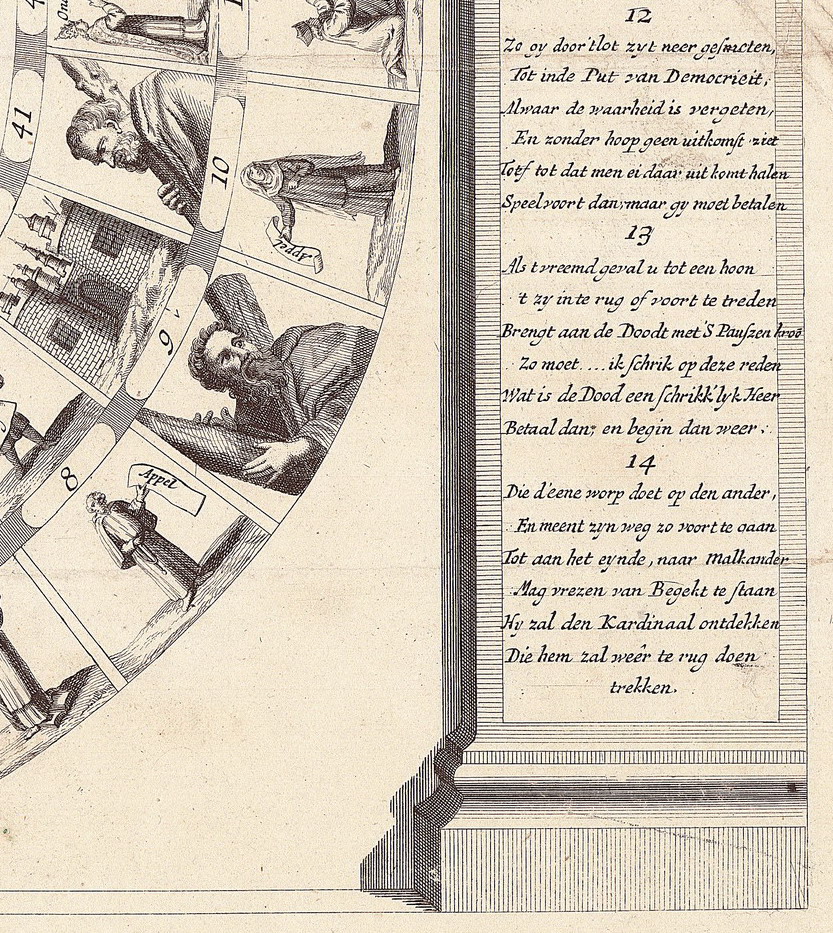 41
10
9
8
Appel
Appel
12
Zo gy door 'tlot zyt neer gesmeten,
Tot inde Put van Democrieit,
Alwaar de waarheid is vergeten,
En zonder hoop geen uitkomst ziet
tot dat men ei daar uit komt halen
Speel voort dan, maar gy moet betalen
13
Als t vreemd geval u tot een hoon
't zy inte rug of voort te treden
Brengt aan de Doodt met 'S Pauszen kroō
Zo moet .... ik schrik op deze reden
Wat is de Dood een schrikk'lyk Heer
Betaal dan; en begin dan weer.
14
Die d'eene worp doet op den ander,
En meent zyn weg zo voort te gaan
Tot aan het eynde, naar malkander
Mag vrezen van Begekt te staan
Hy zal den Kardinaal ontdekken
Die hem zal weêr te rug doen
trekken.